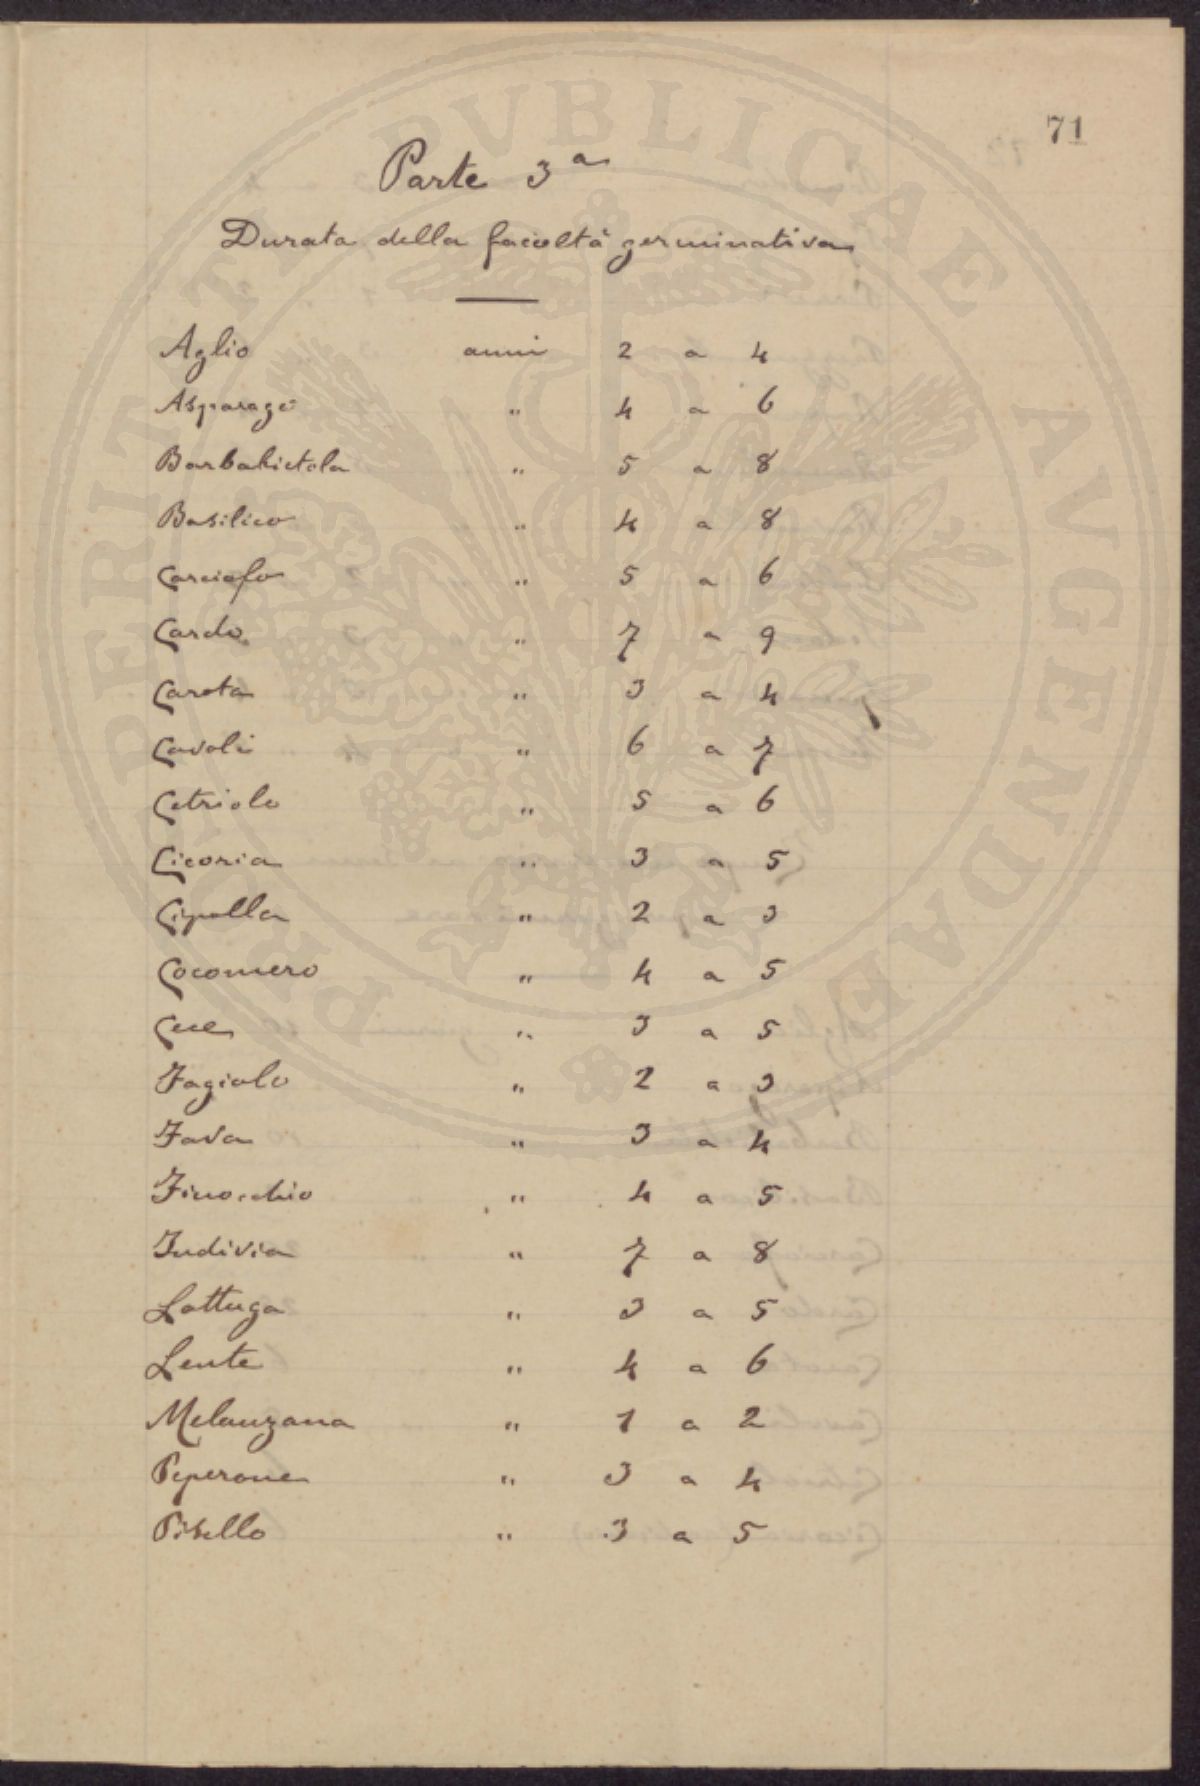 71
Parte 3a
Durata della facoltà germinativa
Aglio anni 2 a 4
Asparago " 4 a 6
Barbabietola " 5 a 8
Basilico " 4 a 8
Carciofo " 5 a 6
Cardo " 7 a 9
Carota " 3 a 4
Cavoli " 6 a 7
Cetriolo " 5 a 6
Cicoria " 3 a 5
Cipolla " 2 a 3
Cocomero " 4 a 5
Cece " 3 a 5
Fagiolo " 2 a 3
Fava " 3 a 4
Finocchio " 4 a 5
Indivia " 7 a 8
Lattuga " 3 a 5
Lente " 4 a 6
Melanzana " 1 a 2
Peperone " 3 a 4
Pisello " 3 a 5
PROSPERITATI PVBLICAE AVGENDAE